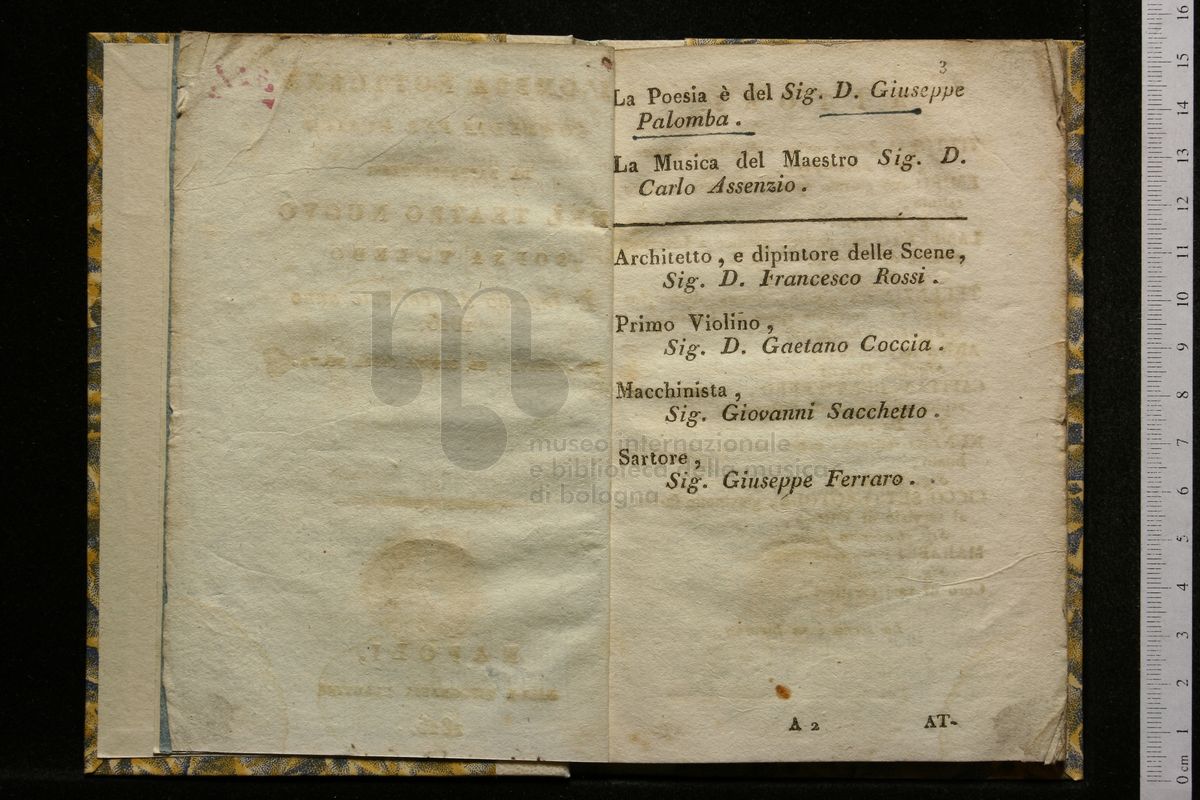 3
La Poesia è del Sig. D. Giuseppe
Palomba.
La Musica del Maestro Sig. D.
Carlo Assenzio.
Architetto, e dipintore delle Scene,
Sig. D. Francesco Rossi.
Primo Violino,
Sig. D. Gaetano Coccia.
Macchinista,
Sig. Giovanni Sacchetto.
Sartore,
Sig. Giuseppe Ferraro.
A 2 AT-
museo internazionale
e biblioteca della musica
di bologna
NAPOLI,
0 cm 1 2 3 4 5 6 7 8 9 10 11 12 13 14 15 16